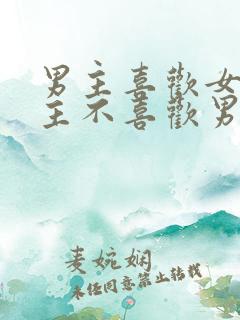 男主喜歡女
主不喜歡男
麦婉娴
未经同意禁止转载